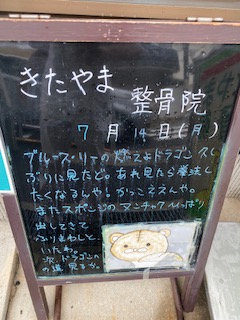 きたやま
整骨院
7月14日(月)
ブルース・リーの燃えよドラゴン久し
ぶりに見たど。あれ見たら拳法し
たくなるんや!かっこええんや。
またスポンジのヌンチャクひっぱり
出してきて
ふりまわして
いたわ。
次、ドラゴンへ
の道見るか。